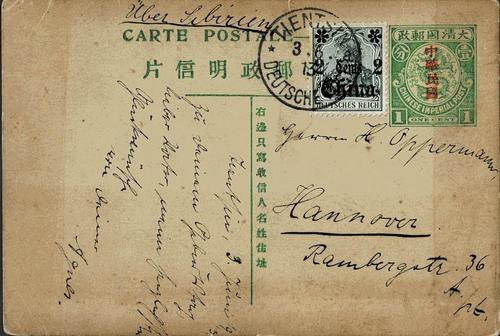 Über Sibirien
CARTE POSTALE
片信明政郵
TIENTSIN
DEUTSCHE
2 Cents 2
China
DEUTSCHES REICH
政郵國清大
中華民國
CHINESE IMPERIAL POST
1 ONE CENT 1
右邊只寫收信人名姓住址
Herrn H. Oppermann,
Hannover
Rambergstr. 36
Tientsin, 3 Juni
Zu Deinem Geburtstag
lieber
Glückwünsche
von Deiner
Agnes.